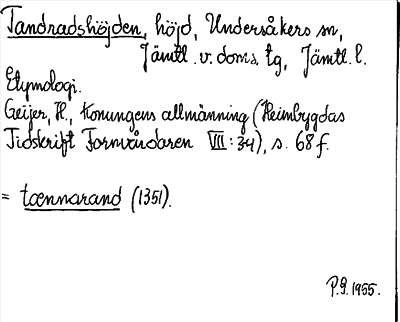 Tandradshöjden, höjd, Undersåkers sn,
Jämtl. v. doms. tg, Jämtl. l.
Etymologi.
Geijer, H., Konungens allmänning (Heimbygdas
Tidskrift Fornvårdaren VIII: 34), s. 68 f.
= tænnarand (1351).
P.J. 1955.